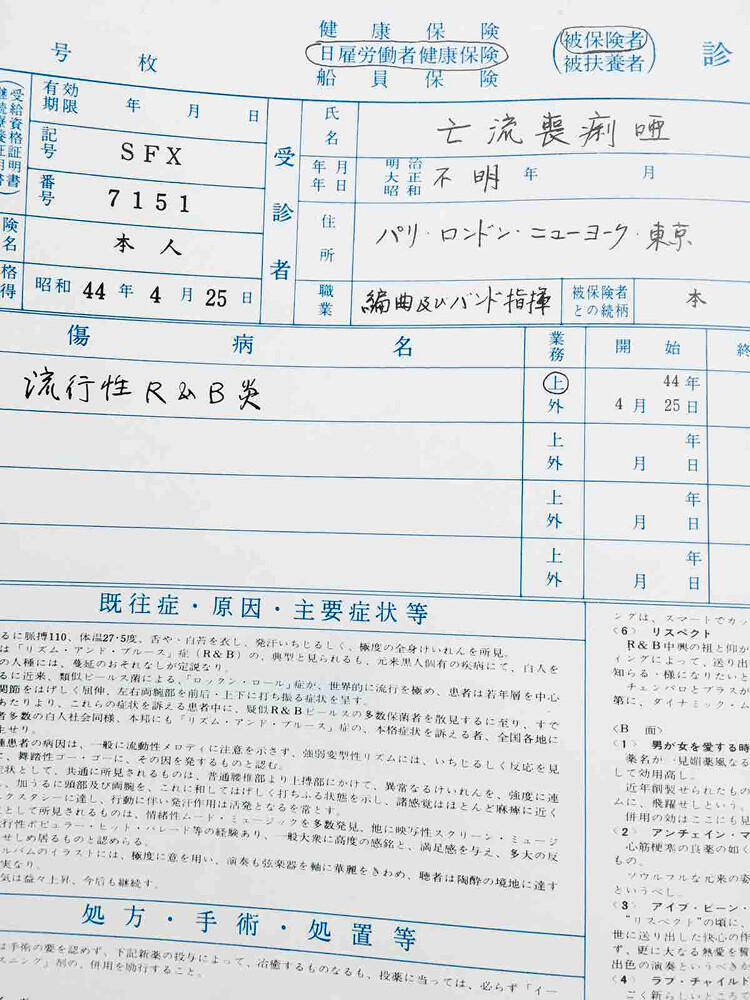 健康保険
日雇労働者健康保険
船員保険
(被保険者
被扶養者)
診
号 枚
(受給資格証明書
継続療養証明書)
有効期限 年 月 日
記号 SFX
番号 7151
険名 本人
格得 昭和 44年 4月 25日
受診者
氏名 亡流喪痢唖
年月年日 明治大正昭和 不明 年 月
住所 パリ・ロンドン・ニューヨーク・東京
職業 編曲及びバンド指揮 被保険者との続柄 本
傷病名 業務 開始 終
流行性R&B炎 上外 44年 4月 25日
上外 年 月 日
上外 年 月 日
上外 年 月 日
既往症・原因・主要症状等
るに脈搏110、体温27・5度、舌や・白苔を衣し、発汗いちじるしく、極度の全身けいれんを所見。
は「リズム・アンド・ブルース」症(R&B)の、典型と見られるも、元来黒人個有の疾病にて、白人を
の人種には、蔓延のおそれなしが定説なり。
るに近来、類似ビールス菌による、「ロックン・ロール」症が、世界的に流行を極め、患者は若年層を中心
関節をはげしく屈伸、左右両腕部を前后・上下に打ち振る症状を呈す。
あたりより、これらの症状を訴える患者中に、疑似R&Bビールスの多数保菌者を散見するに至り、すで
者多数の白人社会同様、本邦にも「リズム・アンド・ブルース」症の、本格症状を訴える者、全国各地に
生せり。
種患者の病因は、一般に流動性メロディに注意を示さず、強弱変型性リズムには、いちじるしく反応を見
に、舞踏性ゴー・ゴーに、その因を発するものと認む。
症状として、共通に所見されるものは、普通腰椎部より上搏部にかけて、異常なるけいれんを、強度に連
し、加うるに頭部及び両腕を、これに和してはげしく打ちふる状態を示し、諸感覚はほとんど麻痺に近く
クスタシーに達し、行動に伴い発汗作用は活発となるを常とす。
として所見されるものは、情緒性ムード・ミュージックを多数発見、他に映写性スクリーン・ミュージ
行性ポピュラー・ヒット・パレード等の経験あり、一般大衆に高度の感銘と、満足感を与え、多大の反
せしめ居るものと認めらる。
ルバムのイラストには、極度に意を用い、演奏も弦楽器を軸に華麗をきわめ、聴者は陶酔の境地に達す
実なり。
気は益々上昇、今后も継続す。
処方・手術・処置等
は手術の要を認めず、下記新薬の投与によって、冶癒するものなるも、投薬に当っては、必らず「イー
スニング」剤の、併用を励行すること。
ングは、スマートでカッ
〈6〉 リスペクト
R&B中興の祖と仰が
ィングによって、送り出
知らる・様になりたいと
チェンバロとブラスが
第に、ダイナミック・ム
〈B 面〉
〈1〉 男が女を愛する時
薬名が一見媚薬風なる
して効用高し。
近年創製せられたもの
ムに、飛躍せしという。
併用の効はここにも見
〈2〉 アンチェイン・マ
心筋梗塞の良薬の如く
もの。
ソウルフルな元来の姿
というべし。
〈3〉 アイブ・ビーン・
“リスペクト”の頃に、
世に送り出した快心の作
ず、更に大なる熱愛を誓
出色の演奏というべきか
〈4〉 ラブ・チャイルド
ごく新らしいところで